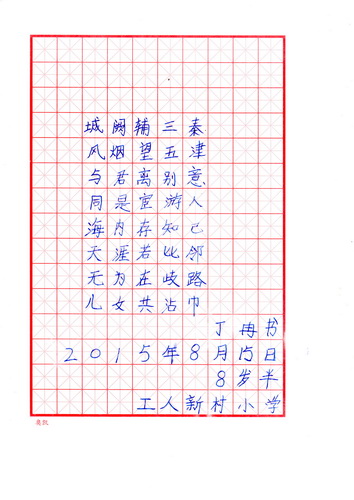 城阙辅三秦
风烟望五津
与君离别意
同是宦游人
海内存知己
天涯若比邻
无为在歧路
儿女共沾巾
丁冉书
2015年8月15日
8岁半
工人新村小学